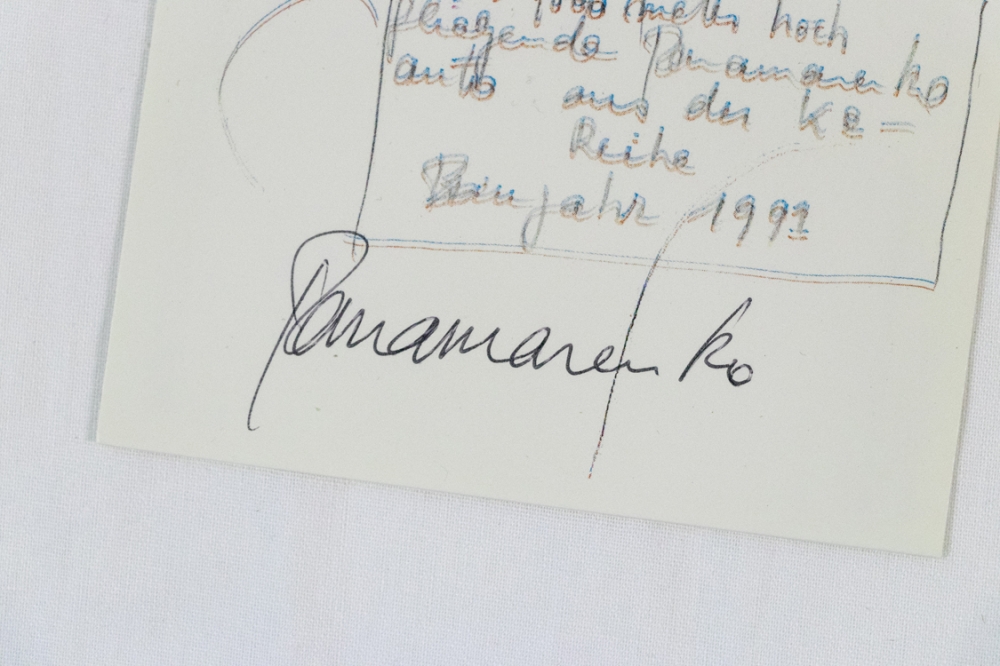 1000 meter hoch
fliegende Panamarenko
auto aus der K2=
Reihe
Baujahr 1991
Panamarenko